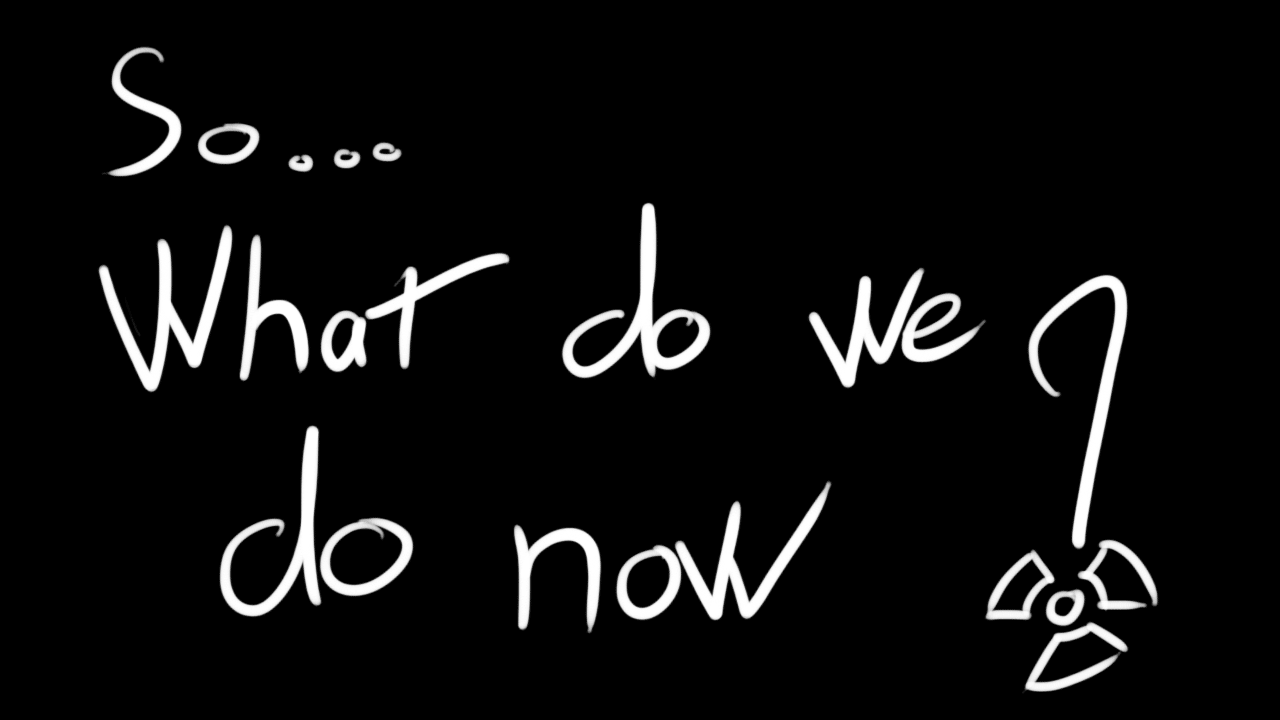 So...
What do we
do now?